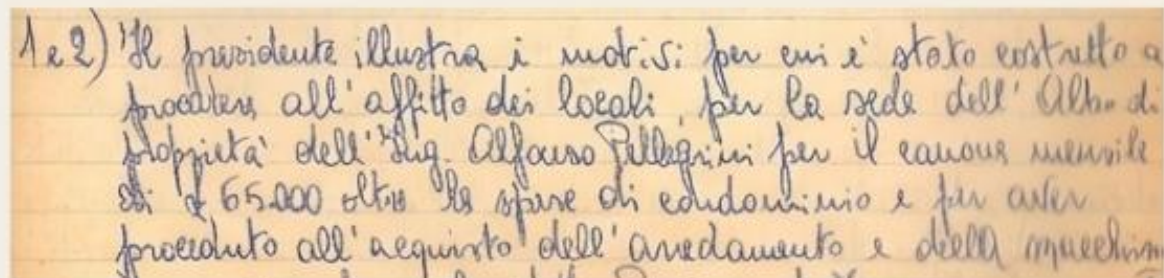 1 e 2) Il presidente illustra i motivi per cui è stato costretto a
procedere all'affitto dei locali, per la sede dell'Albo di
proprietà dell'Ing. Alfonso Pellegrini per il canone mensile
di £ 65.000 oltre le spese di condominio e per aver
proceduto all'acquisto dell'arredamento e della macchina